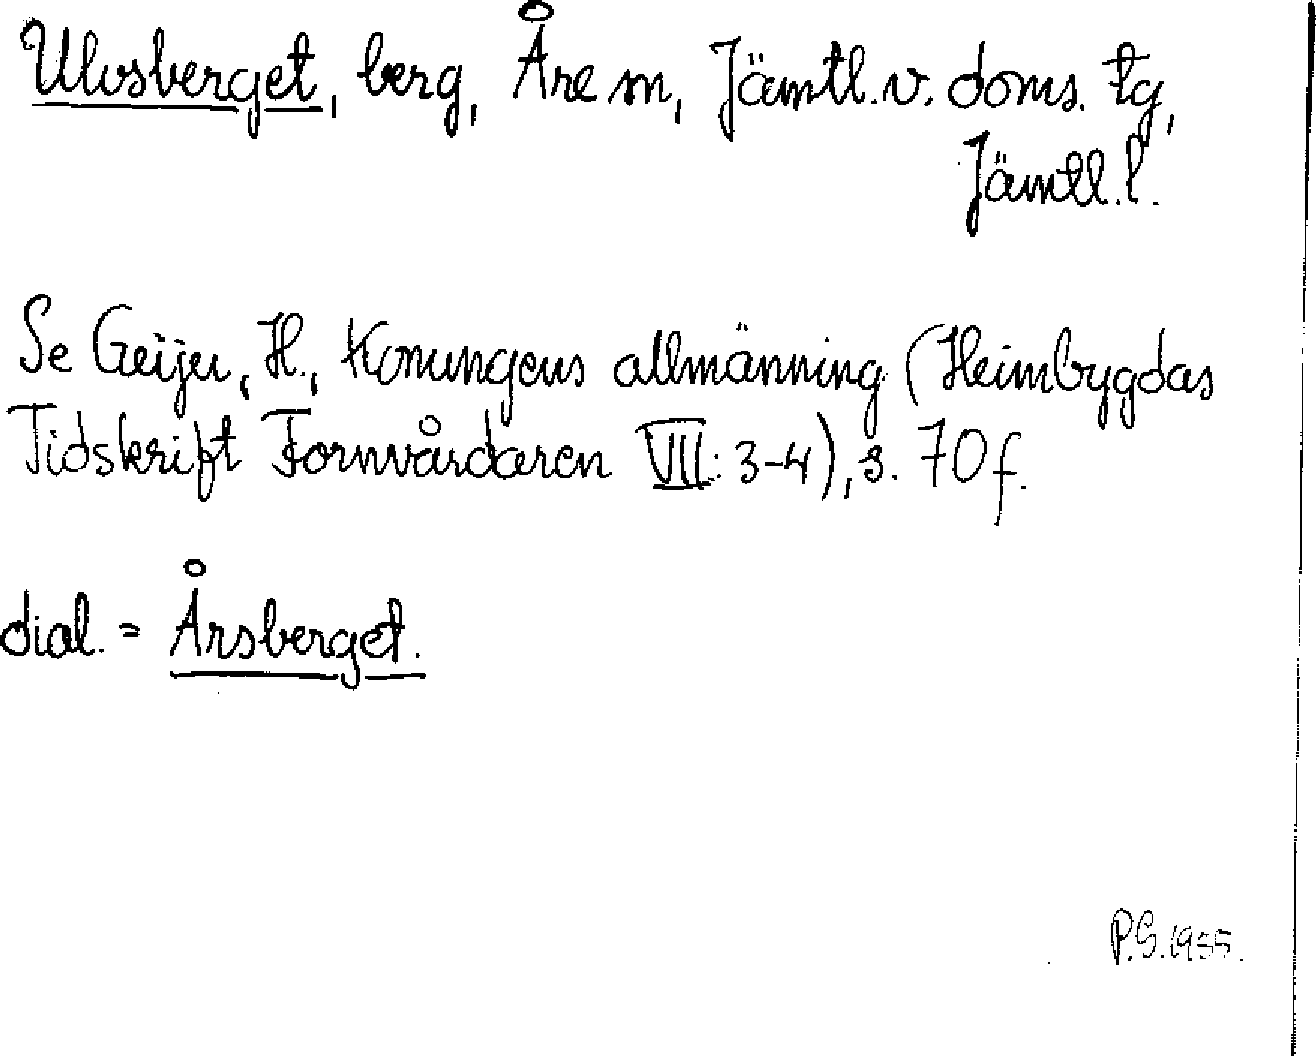 Ulvsberget, berg, Åre sn, Jämtl. v. doms. tg,
Jämtl. l.
Se Geijer, H., Konungens allmänning (Heimbygdas
Tidskrift Fornvårdaren VII: 3-4), s. 70 f.
dial. = Årsberget.
P.G. 1935.